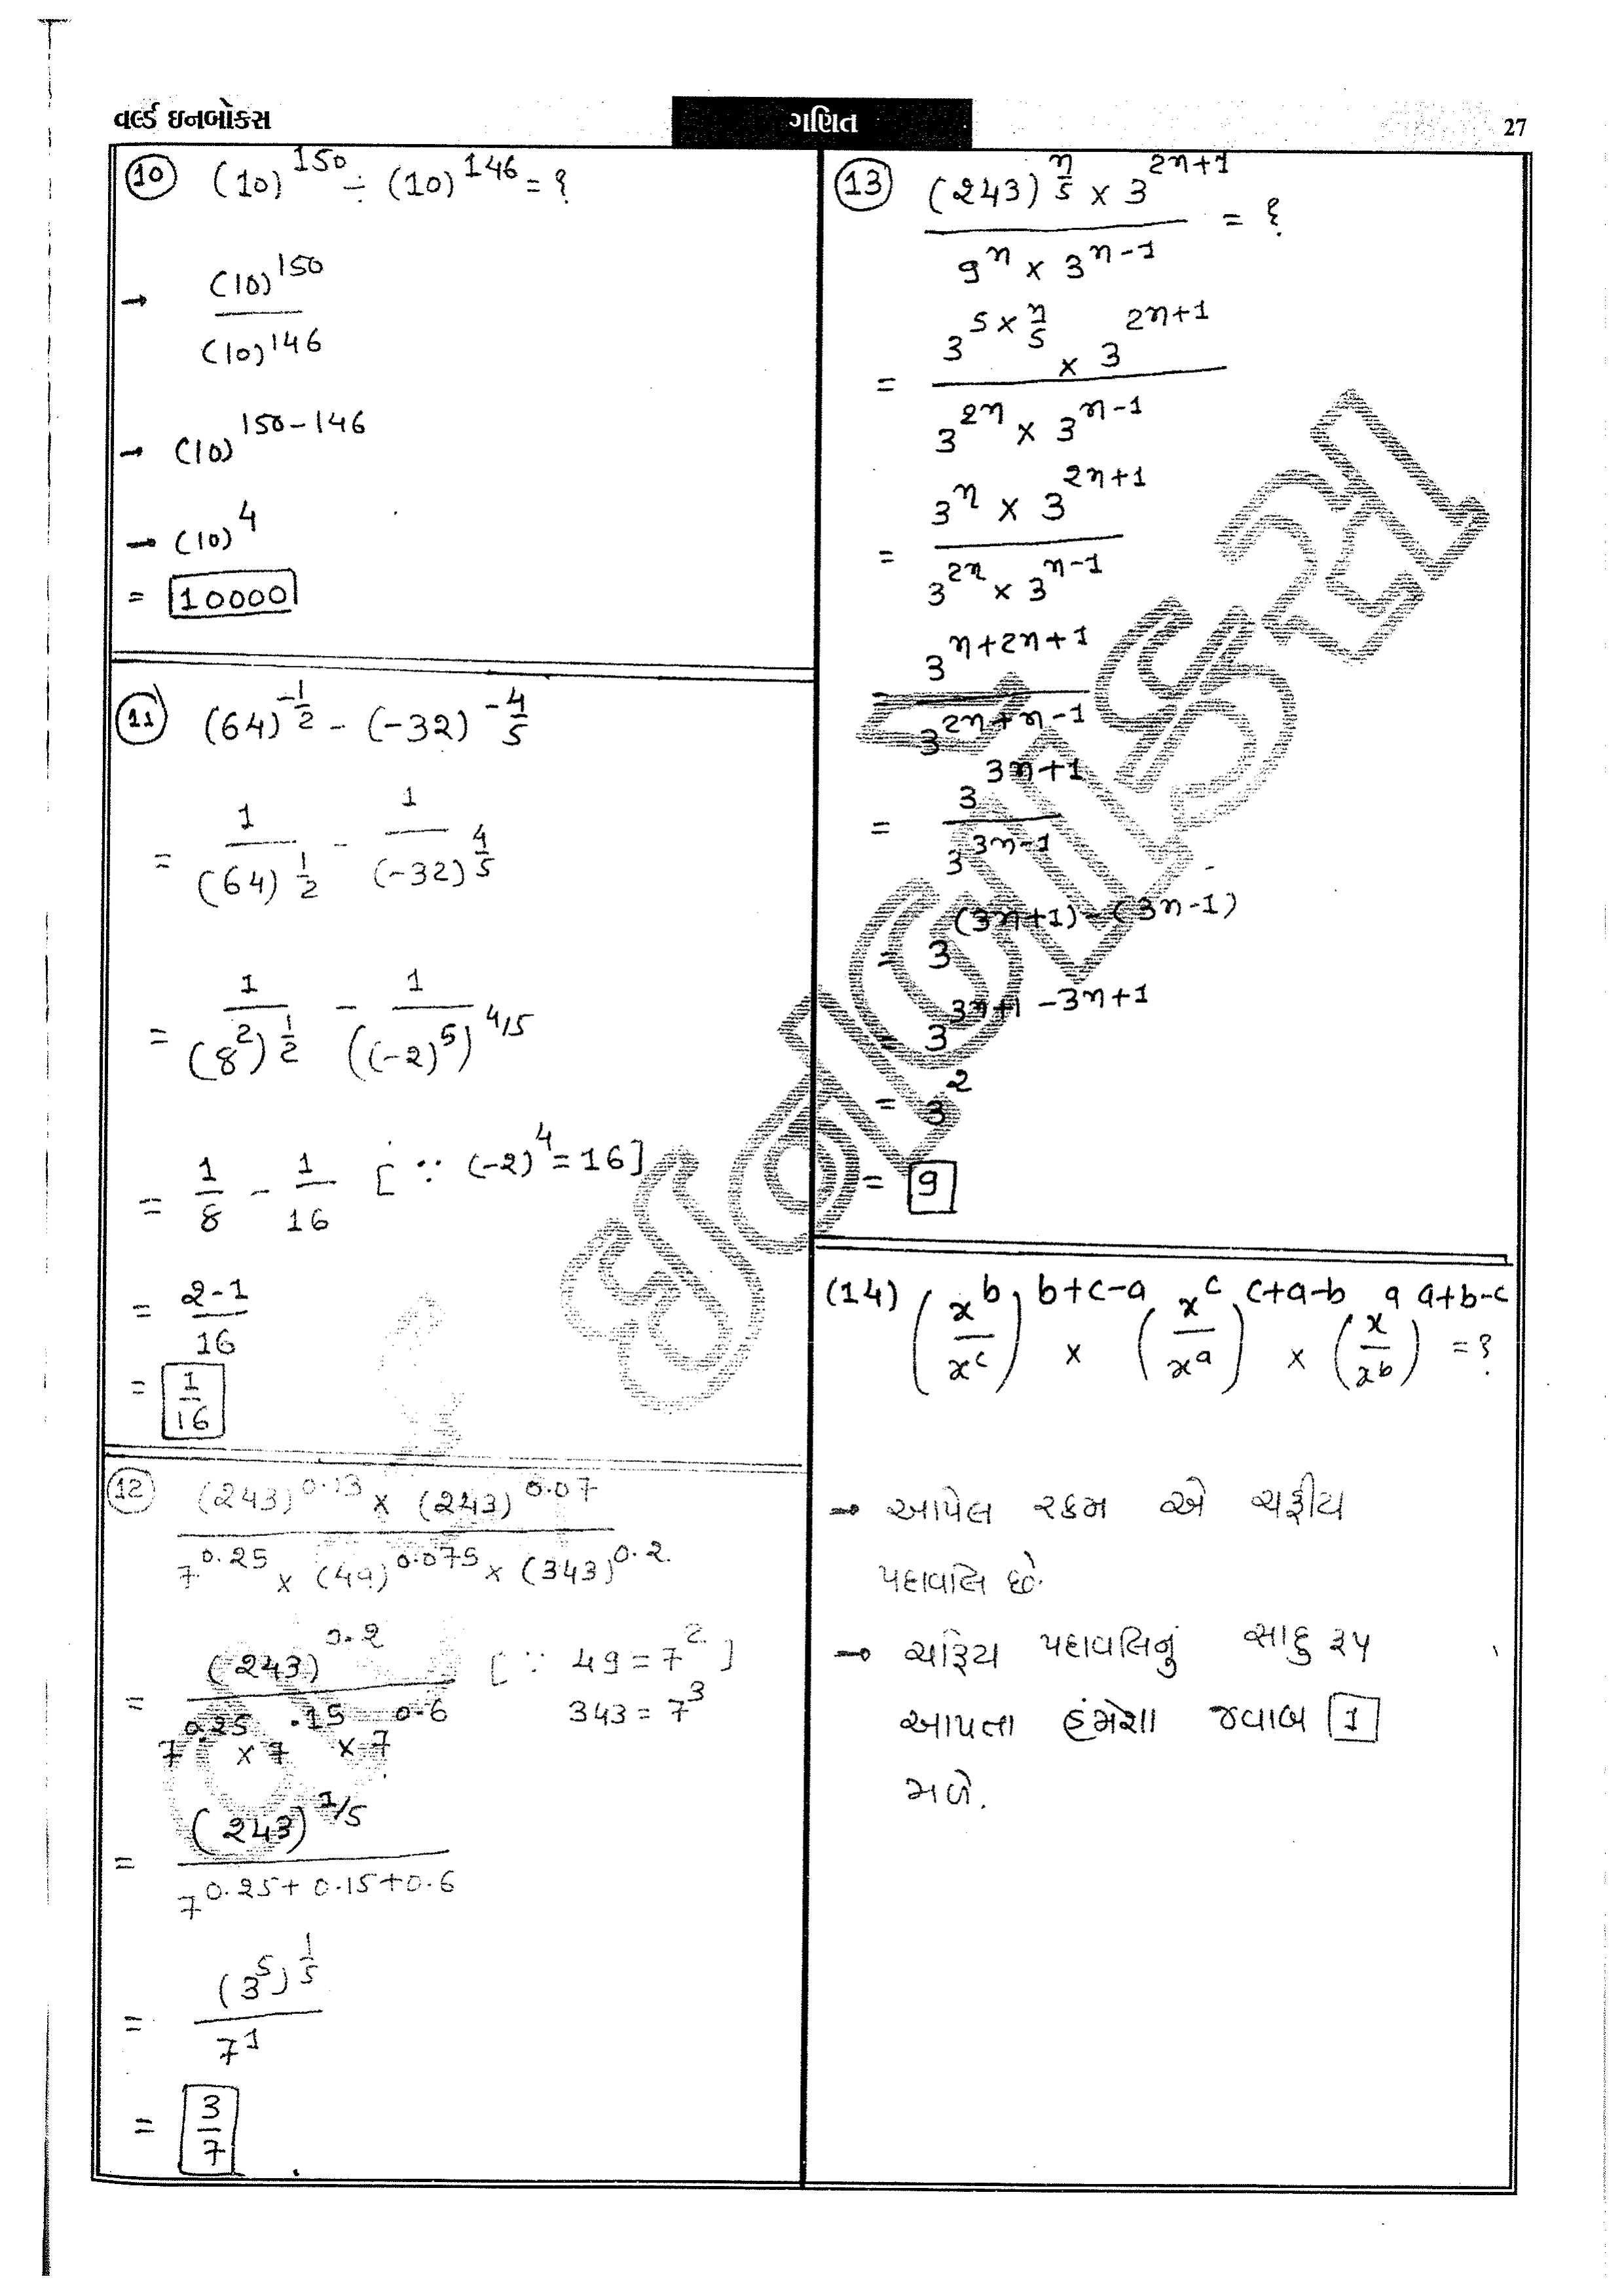 વર્લ્ડ ઇનબોક્સ
ગણિત
27
(10) (10)^150 ÷ (10)^146 = ?
→ (10)^150 / (10)^146
→ (10)^150-146
→ (10)^4
= 10000
(11) (64)^-1/2 - (-32)^-4/5
= 1/(64)^1/2 - 1/(-32)^4/5
= 1/(8^2)^1/2 - 1/((-2)^5)^4/5
= 1/8 - 1/16 [∵ (-2)^4 = 16]
= 2-1/16
= 1/16
(12) (243)^0.13 × (243)^0.07 / 7^0.25 × (49)^0.075 × (343)^0.2
= (243)^0.2 / 7^0.25 × 7^.15 × 7^0.6 [∵ 49 = 7^2 ]
343 = 7^3
= (243)^1/5 / 7^0.25+0.15+0.6
= (3^5)^1/5 / 7^1
= 3/7
(13) (243)^n/5 × 3^2n+1 / 9^n × 3^n-1 = ?
= 3^5×n/5 × 3^2n+1 / 3^2n × 3^n-1
= 3^n × 3^2n+1 / 3^2n × 3^n-1
3^n+2n+1 / 3^2n+n-1
= 3^3n+1 / 3^3n-1
= 3^(3n+1)-(3n-1)
= 3^3n+1-3n+1
= 3^2
= 9
(14) (x^b/x^c)^b+c-a × (x^c/x^a)^c+a-b × (x^a/x^b)^a+b-c = ?
→ આપેલ રકમ એ ચક્રીય
પદાવલિ છે.
→ ચક્રિય પદાવલિનું સાદુ રૂપ
આપતા હંમેશા જવાબ 1
મળે.